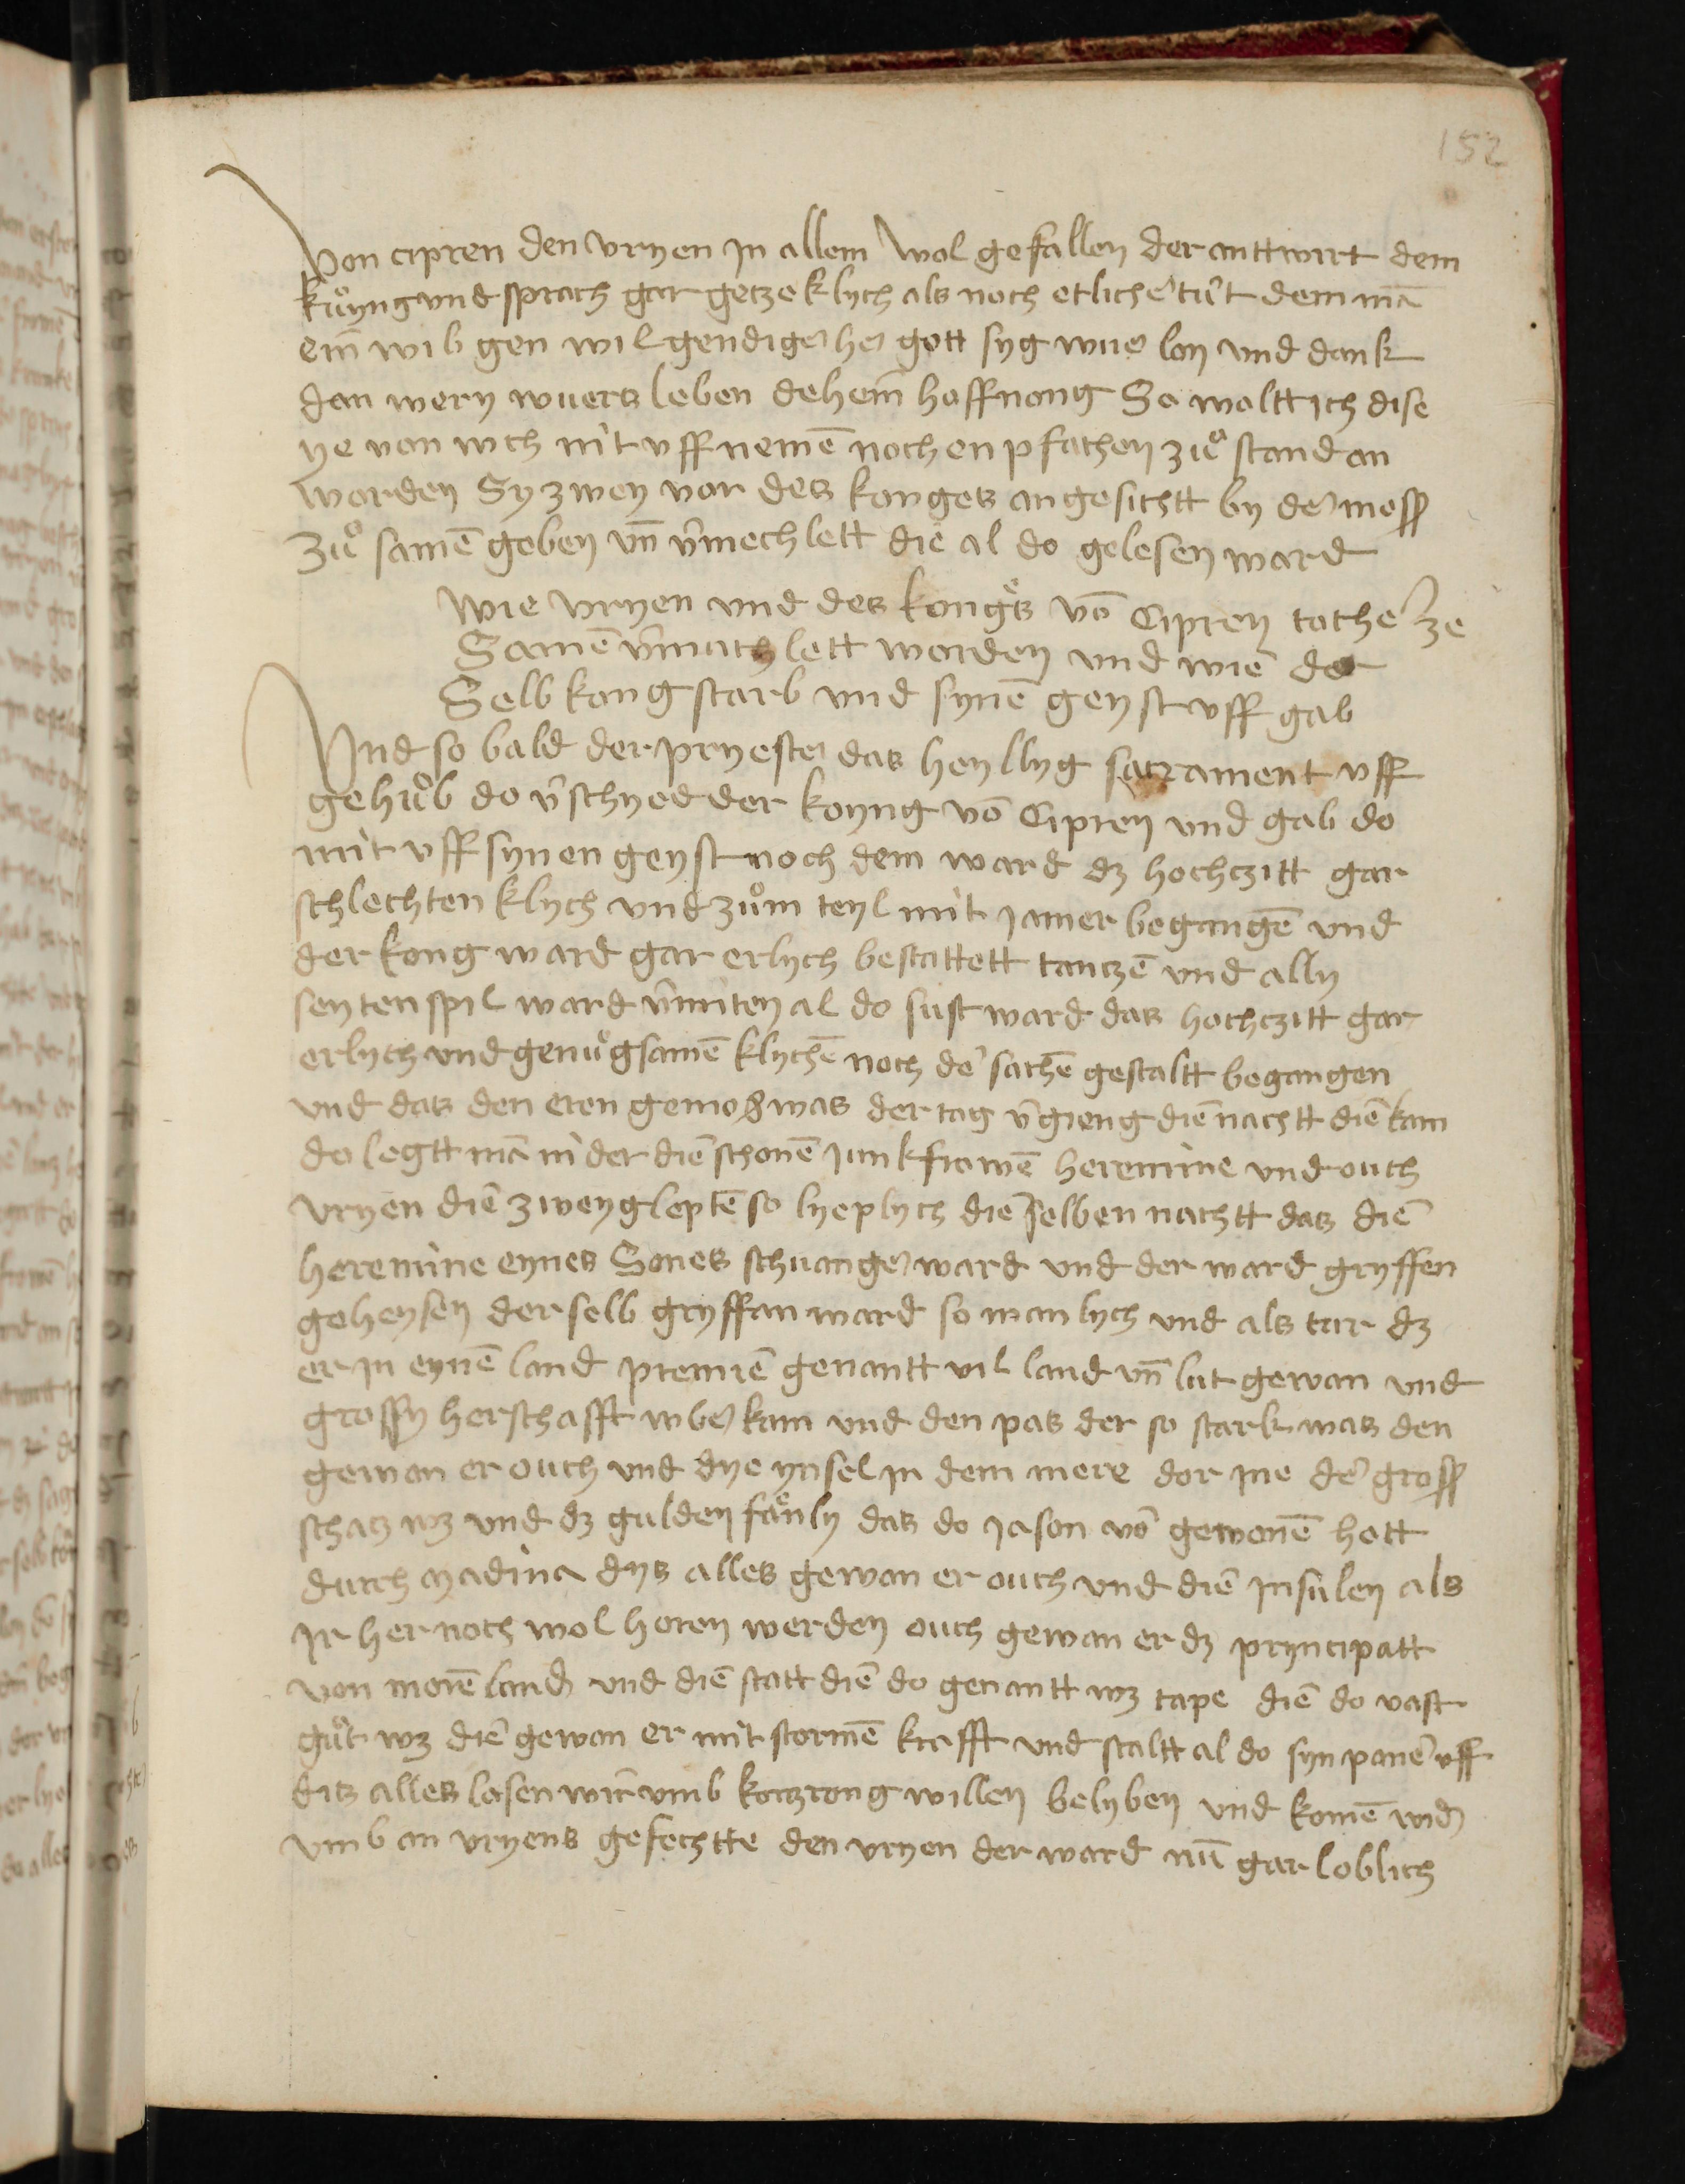 152
Von cipren den vryen jn allem wol gefallen der anttwirt dem
kůyng vnd sprach gar getzeklych als noch etlicher tůt dem mā
ein̄ wib gen wil gendiger her gott syg wuer lon vnd dank
dan wery wuers leben dehein̄ hoffnong So woltt ich dise
ye von wch nit vff nemē noch enpfachen zuͦ stand an
worden Sy zwey vor des konges angesichtt by der mess
zuͦ samē geben vn̄ v̄mechlett die al do gelesen ward
wie vryen vnd des konges vō Cipren tochter ze
Samē v̄machlett worden vnd wie der
Selb kong starb vnd synē geyst vff gab
Vnd so bald der pryester das heyllyg sacrament vff
gehuͦb do v̄schyed der koyng vō Cipren vnd gab do
mit vff synen geyst noch dem ward dz hochczitt gar
schlechtenklych vnd zuͦm teyl mit jamer begangē vnd
der kong ward gar erlych bestattett tanczē vnd ally
seytenspil ward v̄miten al do sust ward das hochczitt gar
erlych vnd genuͦgsamēklychē noch der sachē gestaltt begangen
vnd das den eren gemoß was der tag v̄gieng die nachtt die kam
do legtt mā nider die schonē junkfrowē heremine vnd ouch
vryen die zwey gleptē so lyeplych die selben nachtt das die
heremine eynes Sones schuanger ward vnd der ward gryffen
geheysen der selb gryffan ward so manlych vnd als tar dz
er jn eynē land premie genantt vil land vn̄ lut gewan vnd
grossy herschafft wber kam vnd den pas der so stark was den
gewan er ouch vnd dye ynsel jn dem mere dor jne der gross
schatz wz vnd dz gulden fanly das do jason vor gewonē hett
durch madina dys alles gewan er ouch vnd die jnsulen als
jr her noch wol horen werden ouch gewan er dz pryncipatt
von morēland vnd die statt die do genantt wz tape die do vast
guͦt wz die gewan er mit stormē krafft vnd staltt al do syn paner vff
dis alles lasen wir vmb korczrong willen belyben vnd komē wider
vmb an vryens gefechtte den vryen der ward nū gar loblich